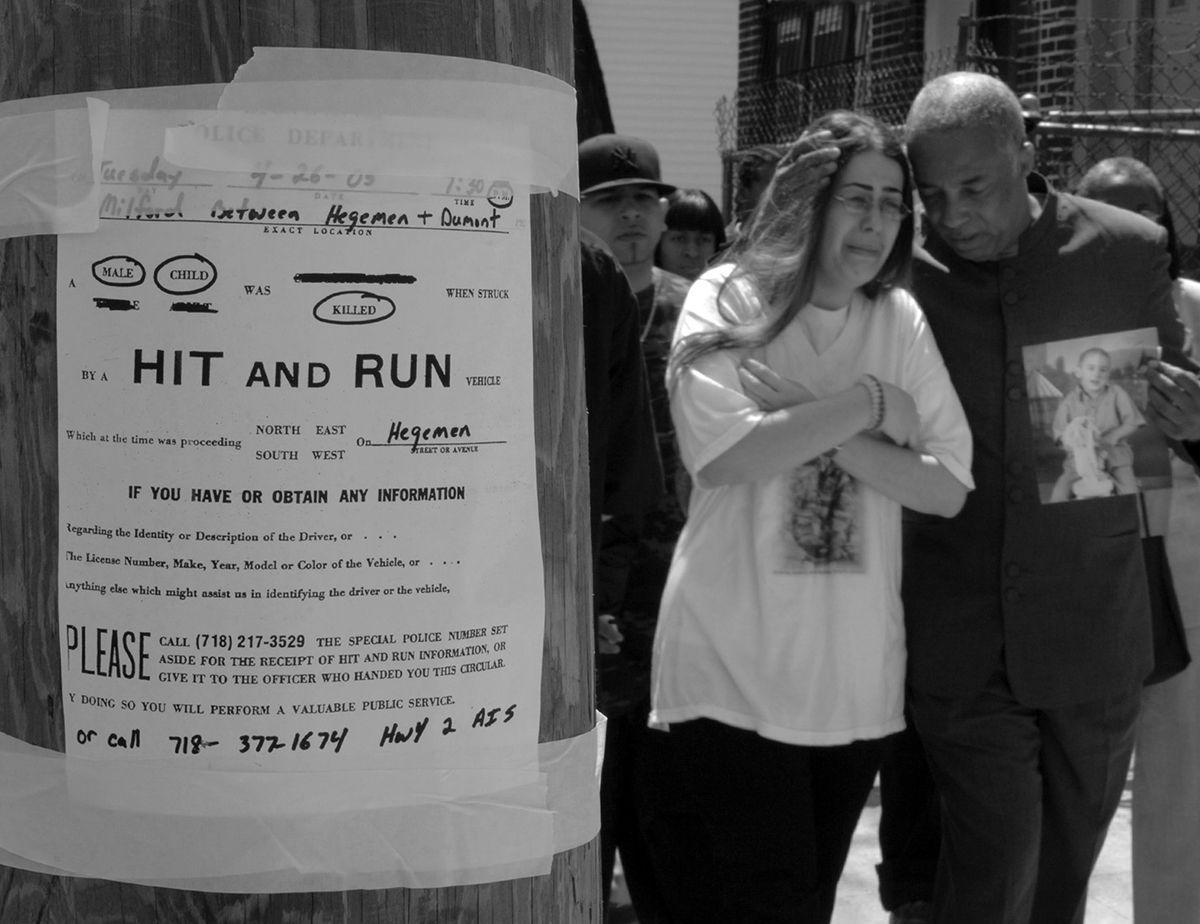 POLICE DEPARTMENT
Tuesday 4-26-05 7:30 P.M.
DAY DATE TIME
Milford Between Hegemen + Dumont
EXACT LOCATION
A MALE CHILD WAS WHEN STRUCK
KILLED
BY A HIT AND RUN VEHICLE
Which at the time was proceeding NORTH EAST On Hegemen
SOUTH WEST STREET OR AVENUE
IF YOU HAVE OR OBTAIN ANY INFORMATION
Regarding the Identity or Description of the Driver, or . . .
The License Number, Make, Year, Model or Color of the Vehicle, or . . . .
Anything else which might assist us in identifying the driver or the vehicle,
PLEASE CALL (718) 217-3529 THE SPECIAL POLICE NUMBER SET
ASIDE FOR THE RECEIPT OF HIT AND RUN INFORMATION, OR
GIVE IT TO THE OFFICER WHO HANDED YOU THIS CIRCULAR.
Y DOING SO YOU WILL PERFORM A VALUABLE PUBLIC SERVICE.
or call 718- 377-1674 Hwy 2 AIS